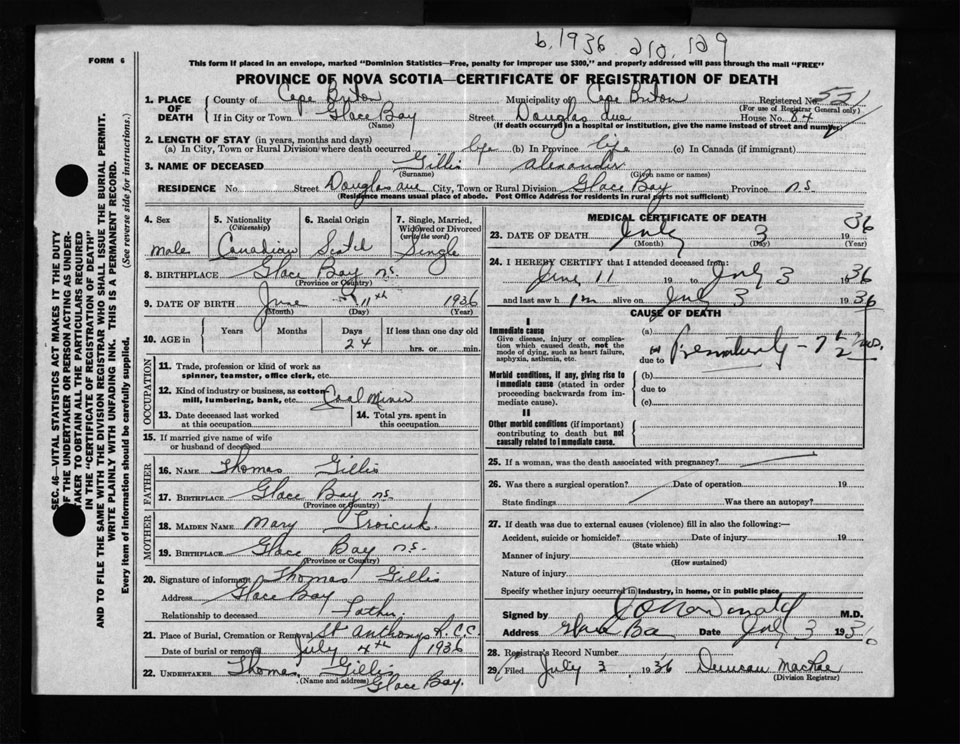 b. 1936. 210. 129
FORM 6
This form if placed in an envelope, marked "Dominion Statistics—Free, penalty for improper use $300," and properly addressed will pass through the mail "FREE"
PROVINCE OF NOVA SCOTIA—CERTIFICATE OF REGISTRATION OF DEATH
1. PLACE OF DEATH { County of Cape Briton Municipality of Cape Briton Registered No. 531
(For use of Registrar General only)
If in City or Town Glace Bay Street Douglas ave House No. 84
(Name) (If death occurred in a hospital or institution, give the name instead of street and number)
2. LENGTH OF STAY (in years, months and days)
(a) In City, Town or Rural Division where death occurred life (b) In Province life (c) In Canada (if immigrant)
3. NAME OF DECEASED Gillis Alexander
(Surname) (Given name or names)
RESIDENCE No. Street Douglas ave City, Town or Rural Division Glace Bay Province n.s.
(Residence means usual place of abode. Post Office Address for residents in rural parts not sufficient)
4. Sex
male
5. Nationality
(Citizenship)
Canadian
6. Racial Origin
Scotch
7. Single, Married, Widowed or Divorced
(write the word)
Single
8. BIRTHPLACE Glace Bay n.s.
(Province or Country)
9. DATE OF BIRTH June 11th 1936
(Month) (Day) (Year)
10. AGE in { Years Months Days If less than one day old
24 hrs. or min.
OCCUPATION
11. Trade, profession or kind of work as
spinner, teamster, office clerk, etc.
12. Kind of industry or business, as cotton
mill, lumbering, bank, etc. Coal Miner
13. Date deceased last worked
at this occupation
14. Total yrs. spent in
this occupation
15. If married give name of wife
or husband of deceased
FATHER
16. NAME Thomas Gillis
17. BIRTHPLACE Glace Bay n.s.
(Province or Country)
MOTHER
18. MAIDEN NAME Mary
19. BIRTHPLACE Glace Bay n.s.
(Province or Country)
20. Signature of informant Thomas Gillis
Address Glace Bay
Relationship to deceased Father.
21. Place of Burial, Cremation or Removal St Anthonys R.C.C.
Date of burial or removal July 4th 1936
22. UNDERTAKER Thomas Gillis
(Name and address) Glace Bay.
MEDICAL CERTIFICATE OF DEATH
23. DATE OF DEATH July 3 1936
(Month) (Day) (Year)
24. I HEREBY CERTIFY that I attended deceased from:
June 11 19 to July 3 1936
and last saw him alive on July 3 1936
CAUSE OF DEATH
I
Immediate cause
Give disease, injury or complication which caused death, not the mode of dying, such as heart failure, asphyxia, asthenia, etc.
(a)
due to Prematurity - 7 1/2 mos.
Morbid conditions, if any, giving rise to immediate cause (stated in order proceeding backwards from immediate cause).
(b)
due to
(c)
II
Other morbid conditions (if important) contributing to death but not causally related to immediate cause.
25. If a woman, was the death associated with pregnancy?
26. Was there a surgical operation? Date of operation 19
State findings Was there an autopsy?
27. If death was due to external causes (violence) fill in also the following:—
Accident, suicide or homicide? Date of injury 19
(State which)
Manner of injury
(How sustained)
Nature of injury
Specify whether injury occurred in industry, in home, or in public place
Signed by M.D.
Address Glace Bay Date July 3 1936
28. Registrar's Record Number
29. Filed July 3 1936 Duncan MacRae
(Division Registrar)
SEC. 46—VITAL STATISTICS ACT MAKES IT THE DUTY
OF THE UNDERTAKER OR PERSON ACTING AS UNDER-
TAKER TO OBTAIN ALL THE PARTICULARS REQUIRED
IN THE "CERTIFICATE OF REGISTRATION OF DEATH"
AND TO FILE THE SAME WITH THE DIVISION REGISTRAR WHO SHALL ISSUE THE BURIAL PERMIT.
WRITE PLAINLY WITH UNFADING INK. THIS IS A PERMANENT RECORD.
Every item of information should be carefully supplied. (See reverse side for instructions.)